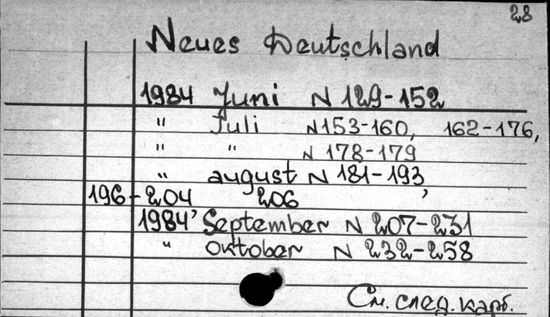 28
Neues Deutschland
1984 Juni N 129-152
" Juli N 153-160, 162-176,
" " N 178-179
" august N 181-193,
196-204, 206
1984 September N 207-231
" oktober N 232-258
См. след. карт.